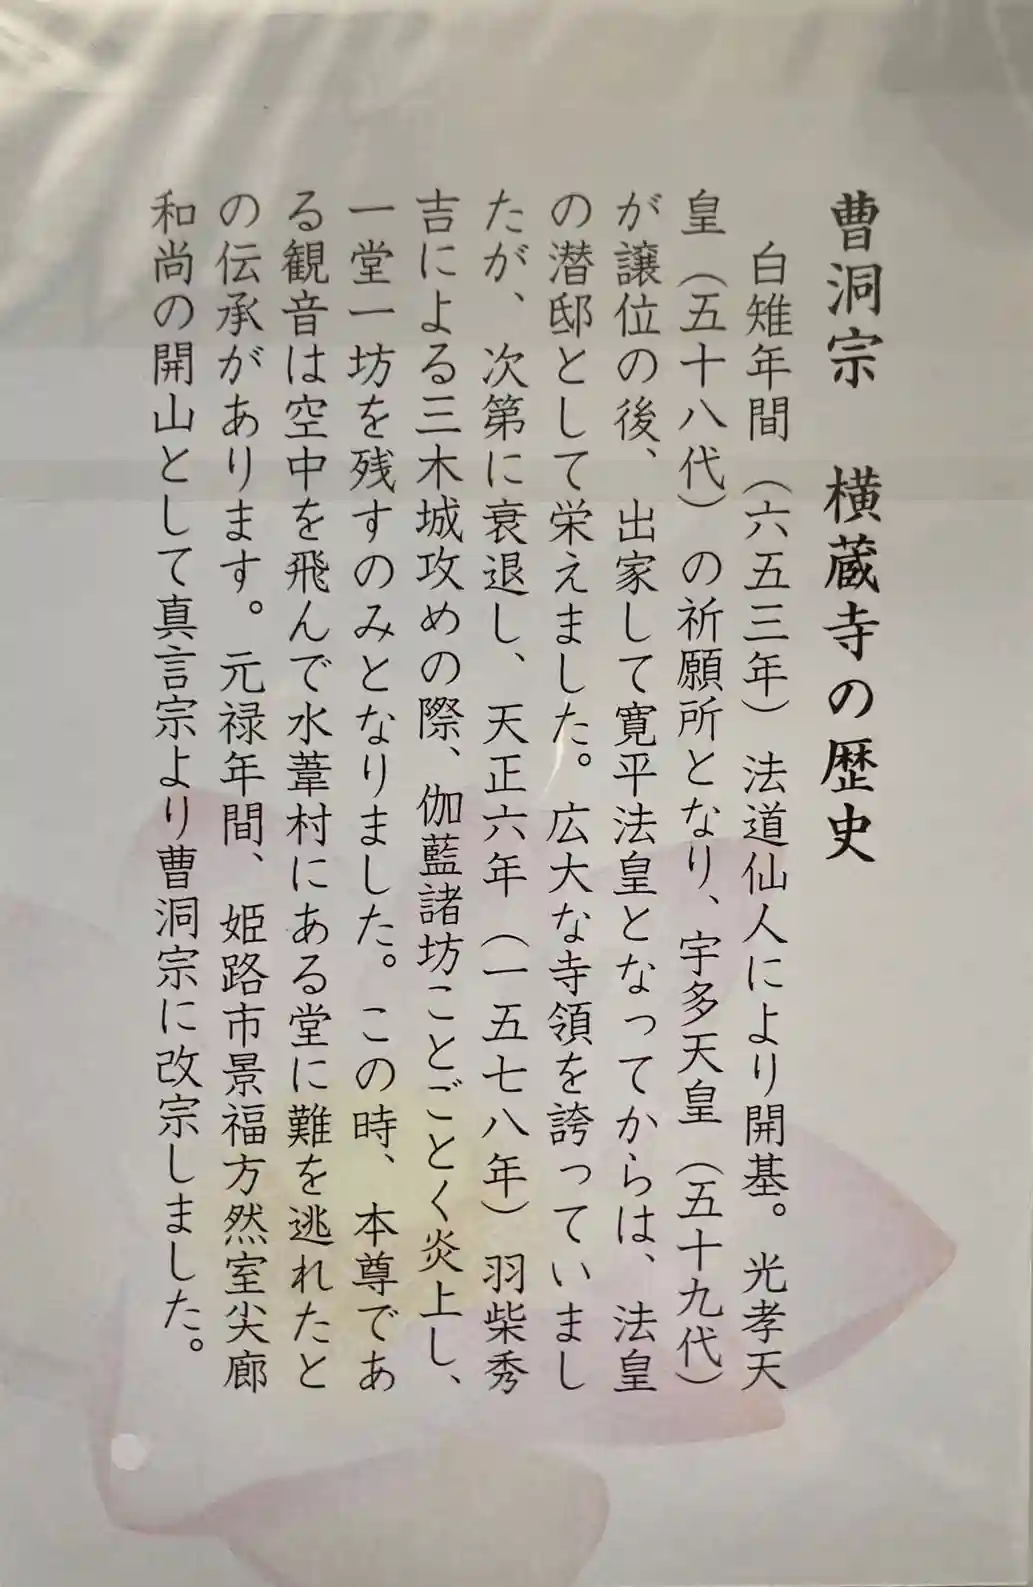 曹洞宗　横蔵寺の歴史
白雉年間（六五三年）法道仙人により開基。光孝天
皇（五十八代）の祈願所となり、宇多天皇（五十九代）
が譲位の後、出家して寛平法皇となってからは、法皇
の潜邸として栄えました。広大な寺領を誇っていまし
たが、次第に衰退し、天正六年（一五七八年）羽柴秀
吉による三木城攻めの際、伽藍諸坊ことごとく炎上し、
一堂一坊を残すのみとなりました。この時、本尊であ
る観音は空中を飛んで水葦村にある堂に難を逃れたと
の伝承があります。元禄年間、姫路市景福方然室尖廊
和尚の開山として真言宗より曹洞宗に改宗しました。